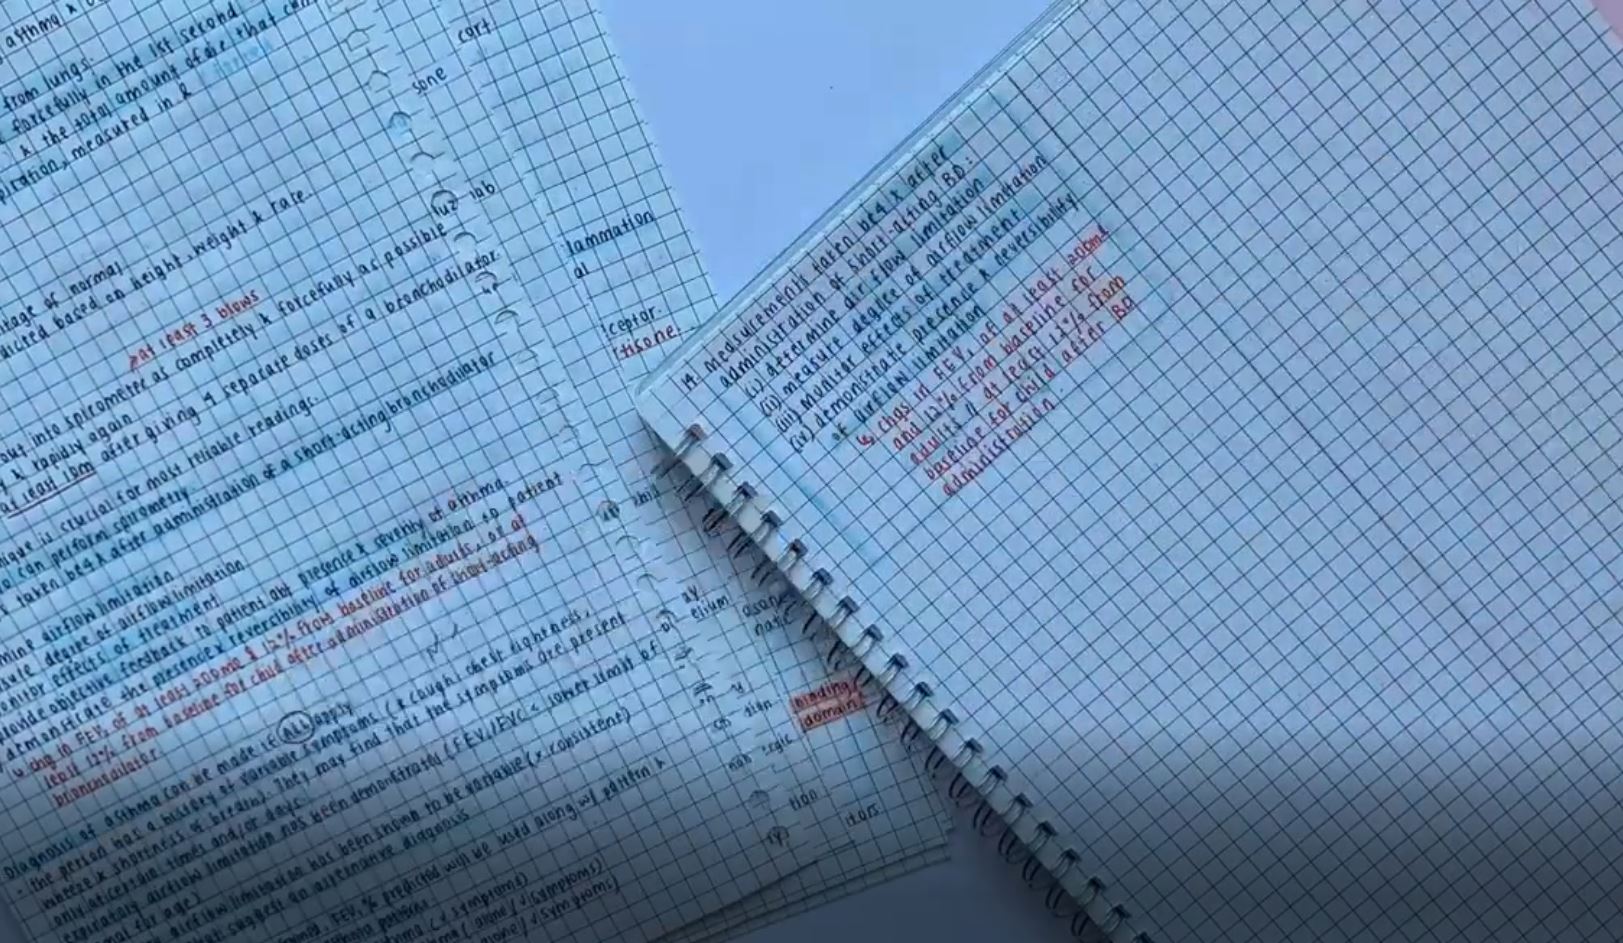 asthma &
from lungs.
forcefully in the 1st second
& the total amount of air that can
piration, measured in l
tage of normal
dicted based on height, weight & race.
→ at least 3 blows
out into spirometer as completely & forcefully as possible
& rapidly again
at least 10m after giving 4 separate doses of a bronchodilator.
nique is crucial for most reliable readings.
o can perform spirometry
s taken be4 & after administration of a short-acting bronchodilator
mine airflow limitation
sure degree of airflow limitation
onitor effects of treatment
ovide objective feedback to patient abt presence & severity of asthma.
demonstrate the presence & reversibility of airflow limitation to patient
↳ chg in FEV₁ of at least 200ml & 12% from baseline for adults, or at
least 12% from baseline for child after administration of short-acting
bronchodilator
Diagnosis of asthma can be made if ALL apply
- the person has a history of variable symptoms (& cough, chest tightness,
wheeze & shortness of breath). They may find that the symptoms are present
only at certain times and/or days.
expiratory airflow limitation has been demonstrated (FEV₁/FVC < lower limit of
mal for age)
airflow limitation has been shown to be variable (x consistent)
that suggest an alternative diagnosis
FEV₁ % predicted will be used along w/ pattern &
asthma pattern.
(√ symptoms)
alone / √ symptoms)
alone / √ symptoms)
cort
sone
luz
lab
lammation
al
ceptor.
tisone.
this
ay
elium
nate
y
tion
ergic
tion
itors
binding
domain
14. measurements taken be4 & after
administration of short-acting BD:
(i) determine airflow limitation
(ii) measure degree of airflow limitation
(iii) monitor effects of treatment
(iv) demonstrate presence & reversibility
of airflow limitation
↳ chgs in FEV₁ of at least 200ml
and 12% from baseline for
adults // at least 12% from
baseline for child after BD
administration